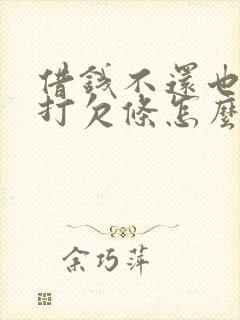 借钱不還也
打欠條怎麼
余巧萍